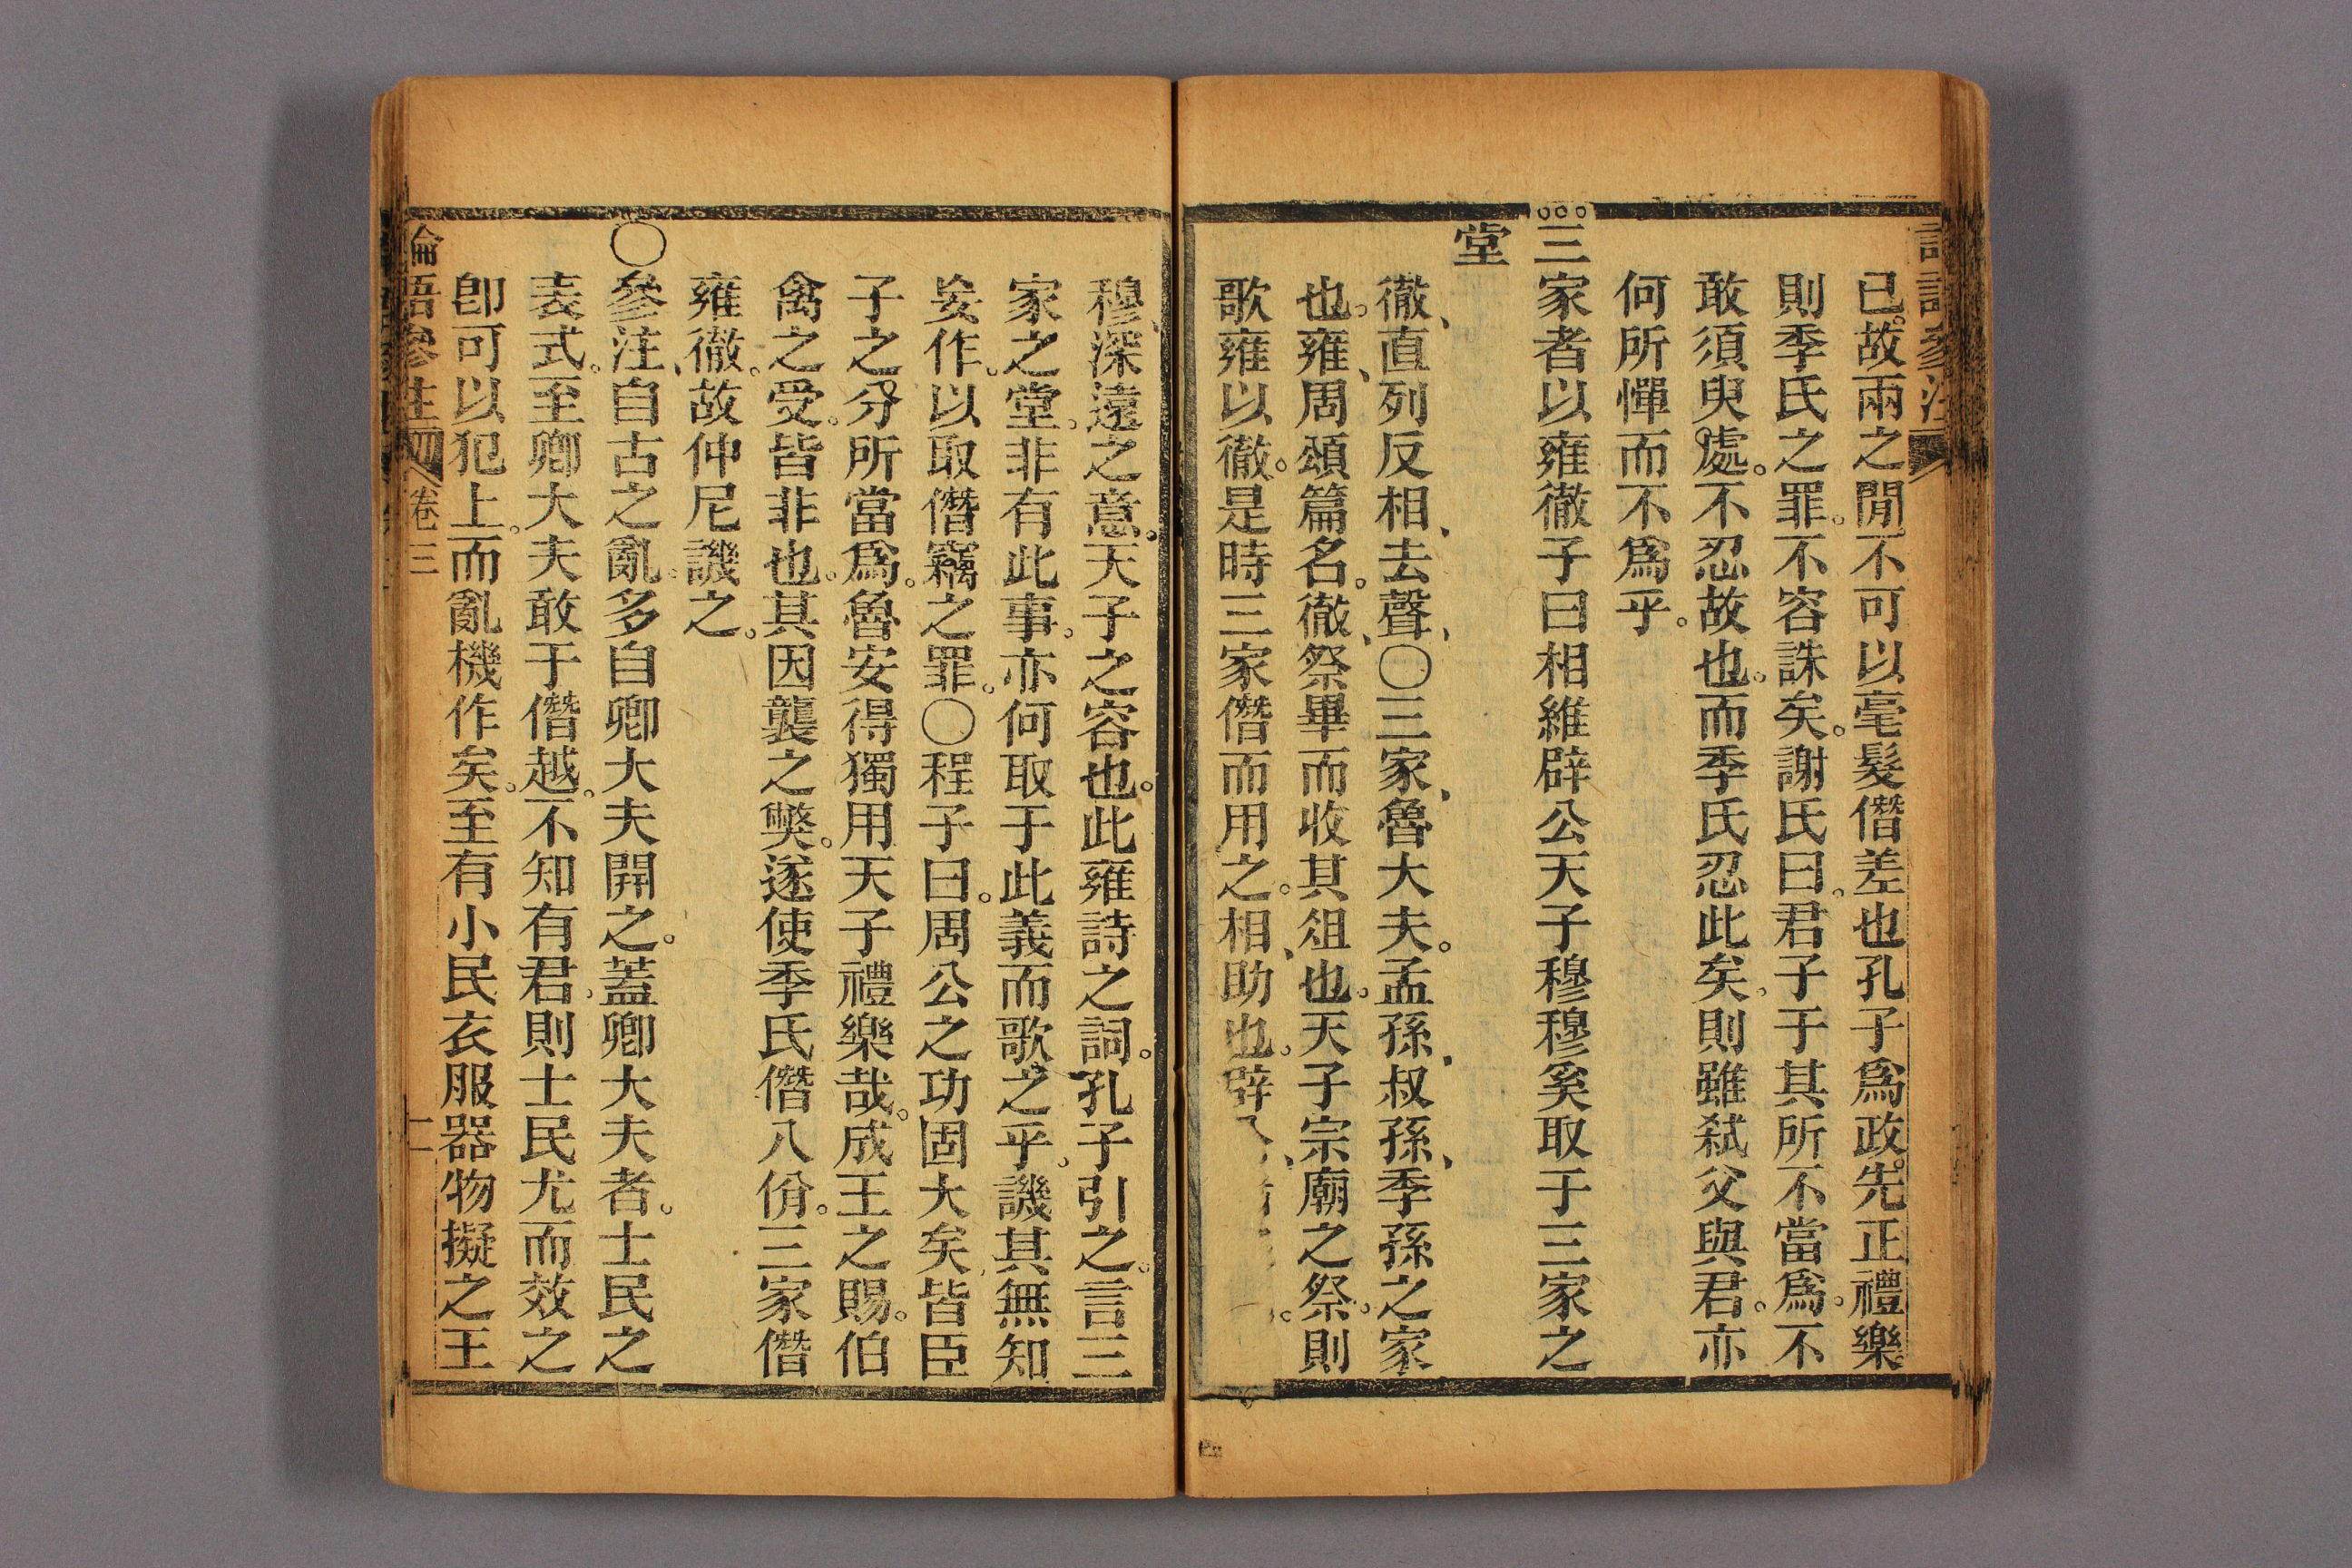 已。故兩之閒不可以毫髮僭差也孔子爲政。先正禮樂
則季氏之罪。不容誅矣。謝氏曰。君子于其所不當爲。不
敢須臾處。不忍故也。而季氏忍此矣。則雖弒父與君。亦
何所憚而不爲乎。
三家者以雍徹子曰相維辟公天子穆穆奚取于三家之
堂
徹、直列反相、去聲、〇三家、魯大夫。孟孫、叔孫、季孫之家
也。雍、周頌篇名。徹、祭畢而收其俎也。天子宗廟之祭。則
歌雍以徹。是時三家僭而用之。相、助也。辟
穆、深遠之意。天子之容也。此雍詩之詞。孔子引之。言三
家之堂。非有此事。亦何取于此義而歌之乎。譏其無知
妄作。以取僭竊之罪。〇程子曰。周公之功固大矣皆臣
子之分所當爲。魯安得獨用天子禮樂哉。成王之賜。伯
禽之受。皆非也。其因襲之獘。遂使季氏僭八佾。三家僭
雍徹。故仲尼譏之。
〇參注、自古之亂。多自卿大夫開之。蓋卿大夫者。士民之
表式。至卿大夫敢于僭越。不知有君。則士民尤而效之
卽可以犯上。而亂機作矣。至有小民衣服器物擬之王
論語參注 卷三 十二